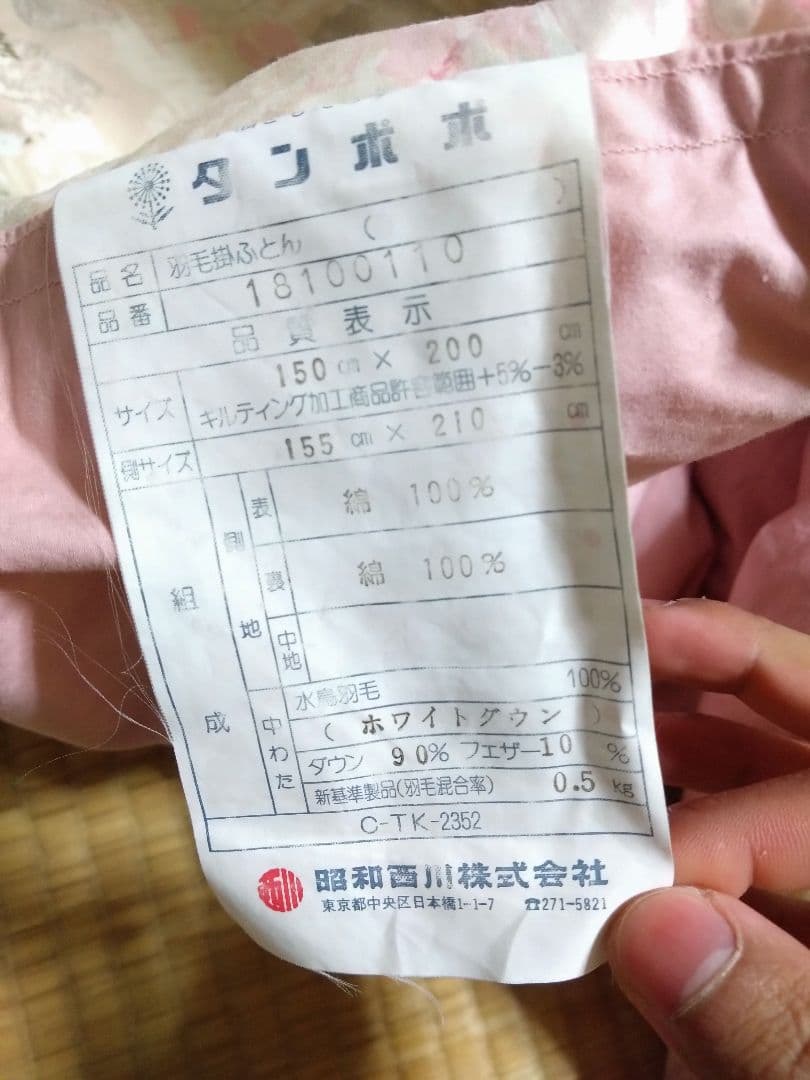 タンポポ
品名 羽毛掛ふとん ( )
品番 18100110
品質表示
サイズ 150cm × 200cm
キルティング加工商品許容範囲+5%-3%
側サイズ 155cm × 210cm
組成 側地 表 綿 100%
裏 綿 100%
中地
中わた 水鳥羽毛 100%
(ホワイトダウン)
ダウン 90% フェザー10%
新基準製品(羽毛混合率) 0.5kg
C-TK-2352
西川 昭和西川株式会社
東京都中央区日本橋1-1-7 ☎271-5821